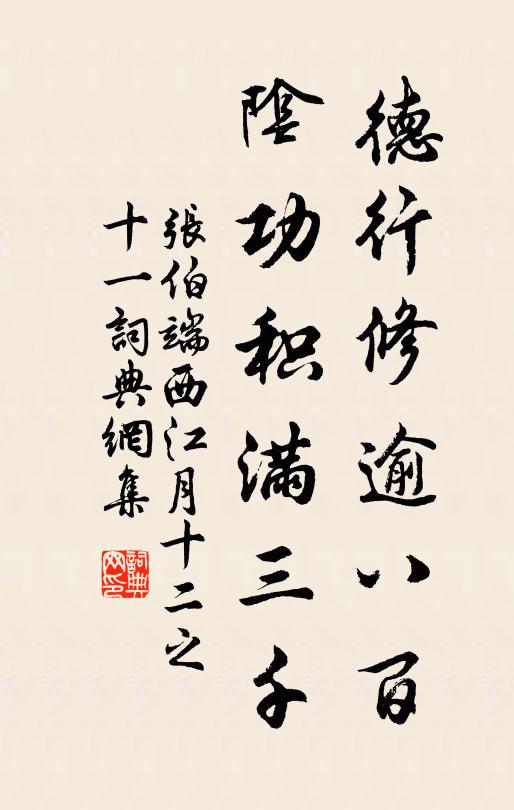 德行修逾八百
陰功积满三千
張伯端西江月十二之
十一詞典網集
詞典
网印